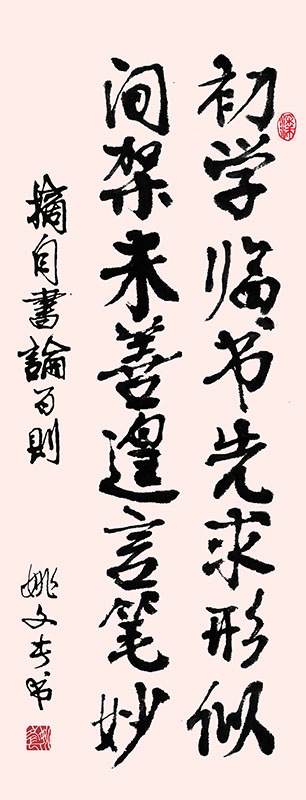 初学临书先求形似
间架未善遑言笔妙
摘自書論百則
姚文书